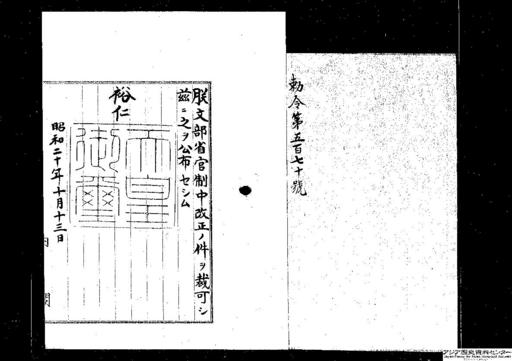 勅令第五百七十號
朕文部省官制中改正ノ件ヲ裁可シ
茲ニ之ヲ公布セシム
裕仁
天皇
御璽
昭和二十年十月十三日
内閣
アジア歴史資料センター